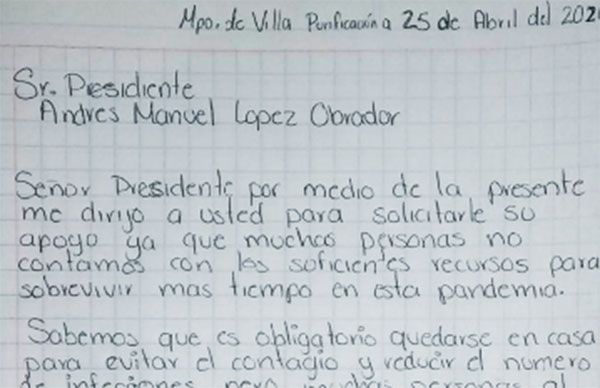 Mpo. de Villa Purificación a 25 de Abril del 202
Sr. Presidiente
Andres Manuel Lopez Obrador
Señor Presidente por medio de la presente
me dirijo a usted para solicitarle su
apoyo ya que muchas personas no
contamos con los suficientes recursos para
sobrevivir mas tiempo en esta pandemia.
Sabemos que es obligatorio quedarse en casa
para evitar el contagio y reducir el numero
de infecciones pero muchas personas al